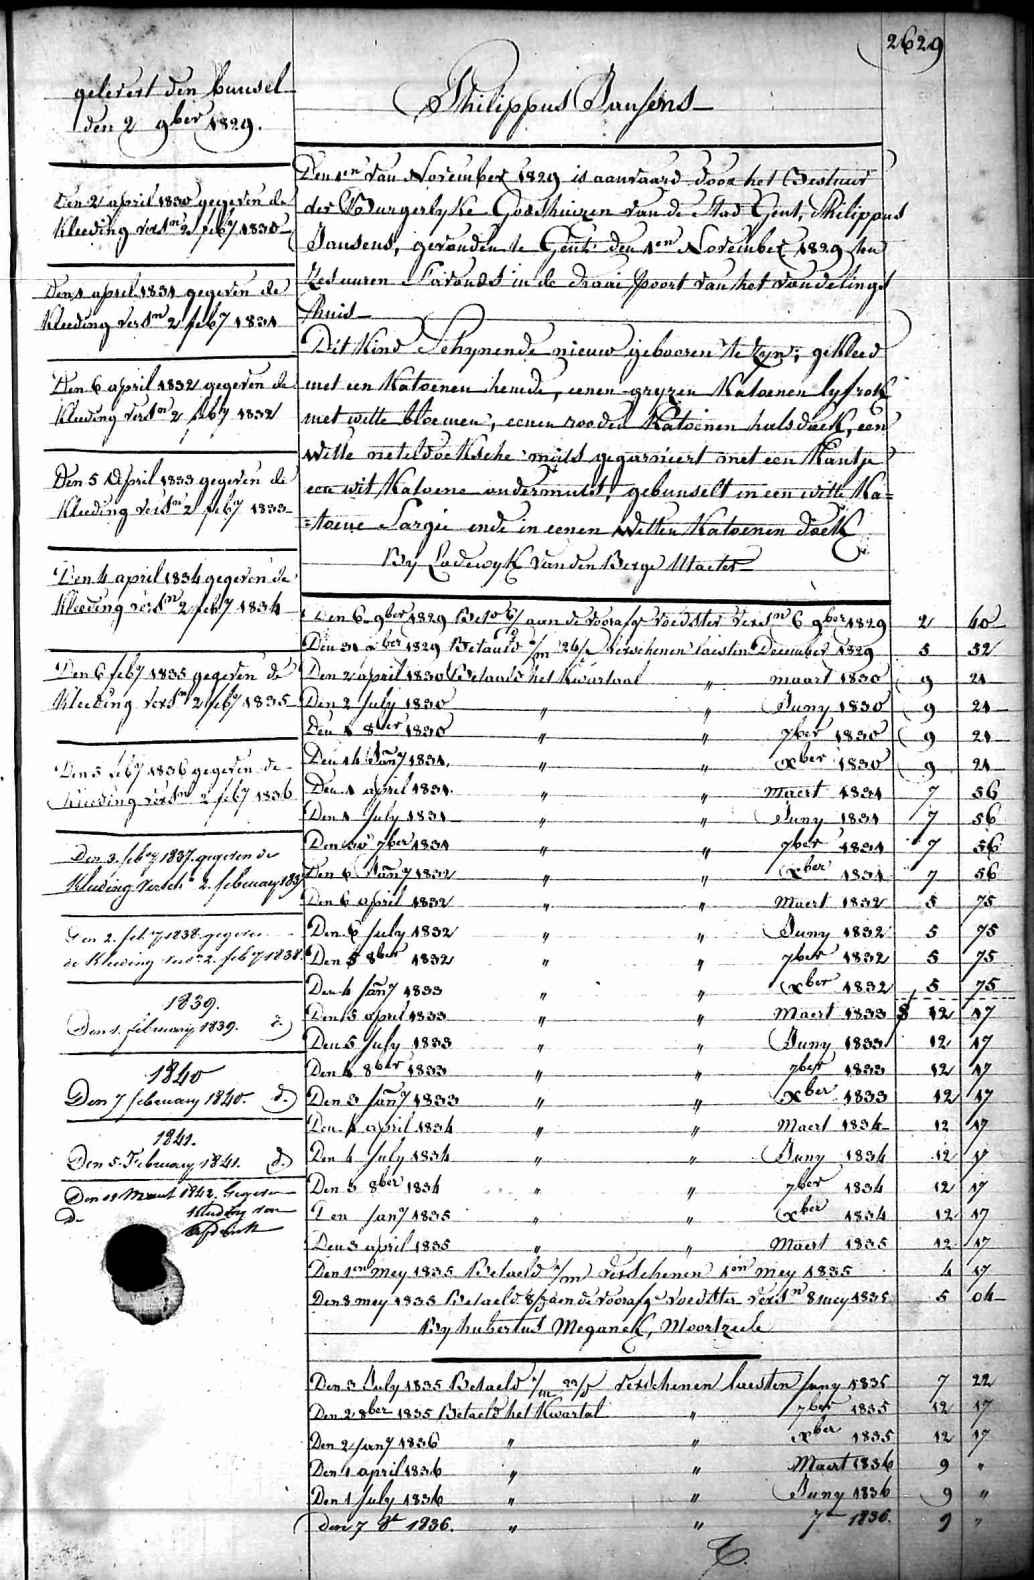 2629
gelevert den bunsel
den 2 9ber 1829.
Den 2 april 1830 gegeven de
kleeding vers.n 2 feby 1830
Den 1 april 1831 gegeven de
kleeding vers.n 2 feby 1831
Den 6 april 1832 gegeven de
kleeding vers.n 2 feby 1832
Den 5 April 1833 gegeven de
kleeding vers.n 2 feby 1833
Den 4 april 1834 gegeven de
kleeding vers.n 2 feby 1834
Den 6 feby 1835 gegeven de
kleeding vers.n 2 feby 1835
Den 5 feby 1836 gegeven de
kleeding vers.n 2 feby 1836
Den 3. feby 1837. gegeven de
kleeding versch.n 2. february 1837
Den 2. feby 1838. gegeven
de kleeding vers.n 2. feby 1838.
1839.
Den 1. february 1839. d.)
1840
Den 7 february 1840. d.)
1841.
Den 5 February 1841. d.)
Den 11 Maart 1842. Gegeven
de kleeding van
Philippus Jansens
Den 1en van November 1829 is aanvaard door het Bestuur
der Burgerlyke Godshuizen van de Stad Gent, Philippus
Jansens, gevonden te Gent den 1en November 1829 ten
zes uuren s'avonds in de draai poort van het vondelings
huis
Dit Kind Schynende nieuw gebooren te zyn; gekleed
met een Katoenen hemde, eenen gryzen Katoenen lyfrok
met witte bloemen, eenen rooden Katoenen halsdoek, een
witte neteldoeksche muts gegarneert met een Kantje
een wit Katoene ondermuts, gebunselt in een witte Ka=
=toene Sargie ende in eenen witten Katoenen doek
By Lodewyk van den Berge Maeter
Den 6 9ber 1829 Bet.d 6/d aan de voorafg.e voedster vers.n 6 9ber 1829 2 40
Den 31 xber 1829 Betaald 1/m 26/d verschenen laesten December 1829 5 52
Den 2 april 1830 Betaald het kwartaal " maart 1830 9 21
Den 2 July 1830 " " Juny 1830 9 21
Den 1 8ber 1830 " " 7ber 1830 9 21
Den 14 Jany 1831. " " xber 1830 9 21
Den 1 april 1831. " " Maert 1831 7 56
Den 1 July 1831 " " Juny 1831 7 56
Den 30 7ber 1831 " " 7ber 1831 7 56
Den 6 Jany 1832 " " xber 1831 7 56
Den 6 april 1832 " " Maert 1832 5 75
Den 6 July 1832 " " Juny 1832 5 75
Den 5 8ber 1832 " " 7ber 1832 5 75
Den 4 Jany 1833 " " xber 1832 5 75
Den 5 april 1833 " " Maert 1833 12 17
Den 5 July 1833 " " Juny 1833 12 17
Den 4 8ber 1833 " " 7ber 1833 12 17
Den 3 Jany 1833 " " xber 1833 12 17
Den 4 april 1834 " " Maert 1834 12 17
Den 4 July 1834 " " Juny 1834 12 17
Den 3 8ber 1834 " " 7ber 1834 12 17
Den Jany 1835 " " xber 1834 12 17
Den 3 april 1835 " " Maert 1835 12 17
Den 1en mey 1835 Betaeld 1/m verschenen 1en mey 1835 4 17
Den 8 mey 1835 Betaeld 8/d aen de voorafg.e voedster vers.n 8 mey 1835 5 04
By hubertus Meganck, Moortzeele
Den 3 July 1835 Betaeld 1/m 23/d verschenen laesten Juny 1835 7 22
Den 2 8ber 1835 Betaeld het kwartal " 7ber 1835 12 17
Den 2 Jany 1836 " " xber 1835 12 17
Den 1 april 1836 " " Maert 1836 9 "
Den 1 July 1836 " " Juny 1836 9 "
den 7 8r 1836. " " 7r 1836. 9 "